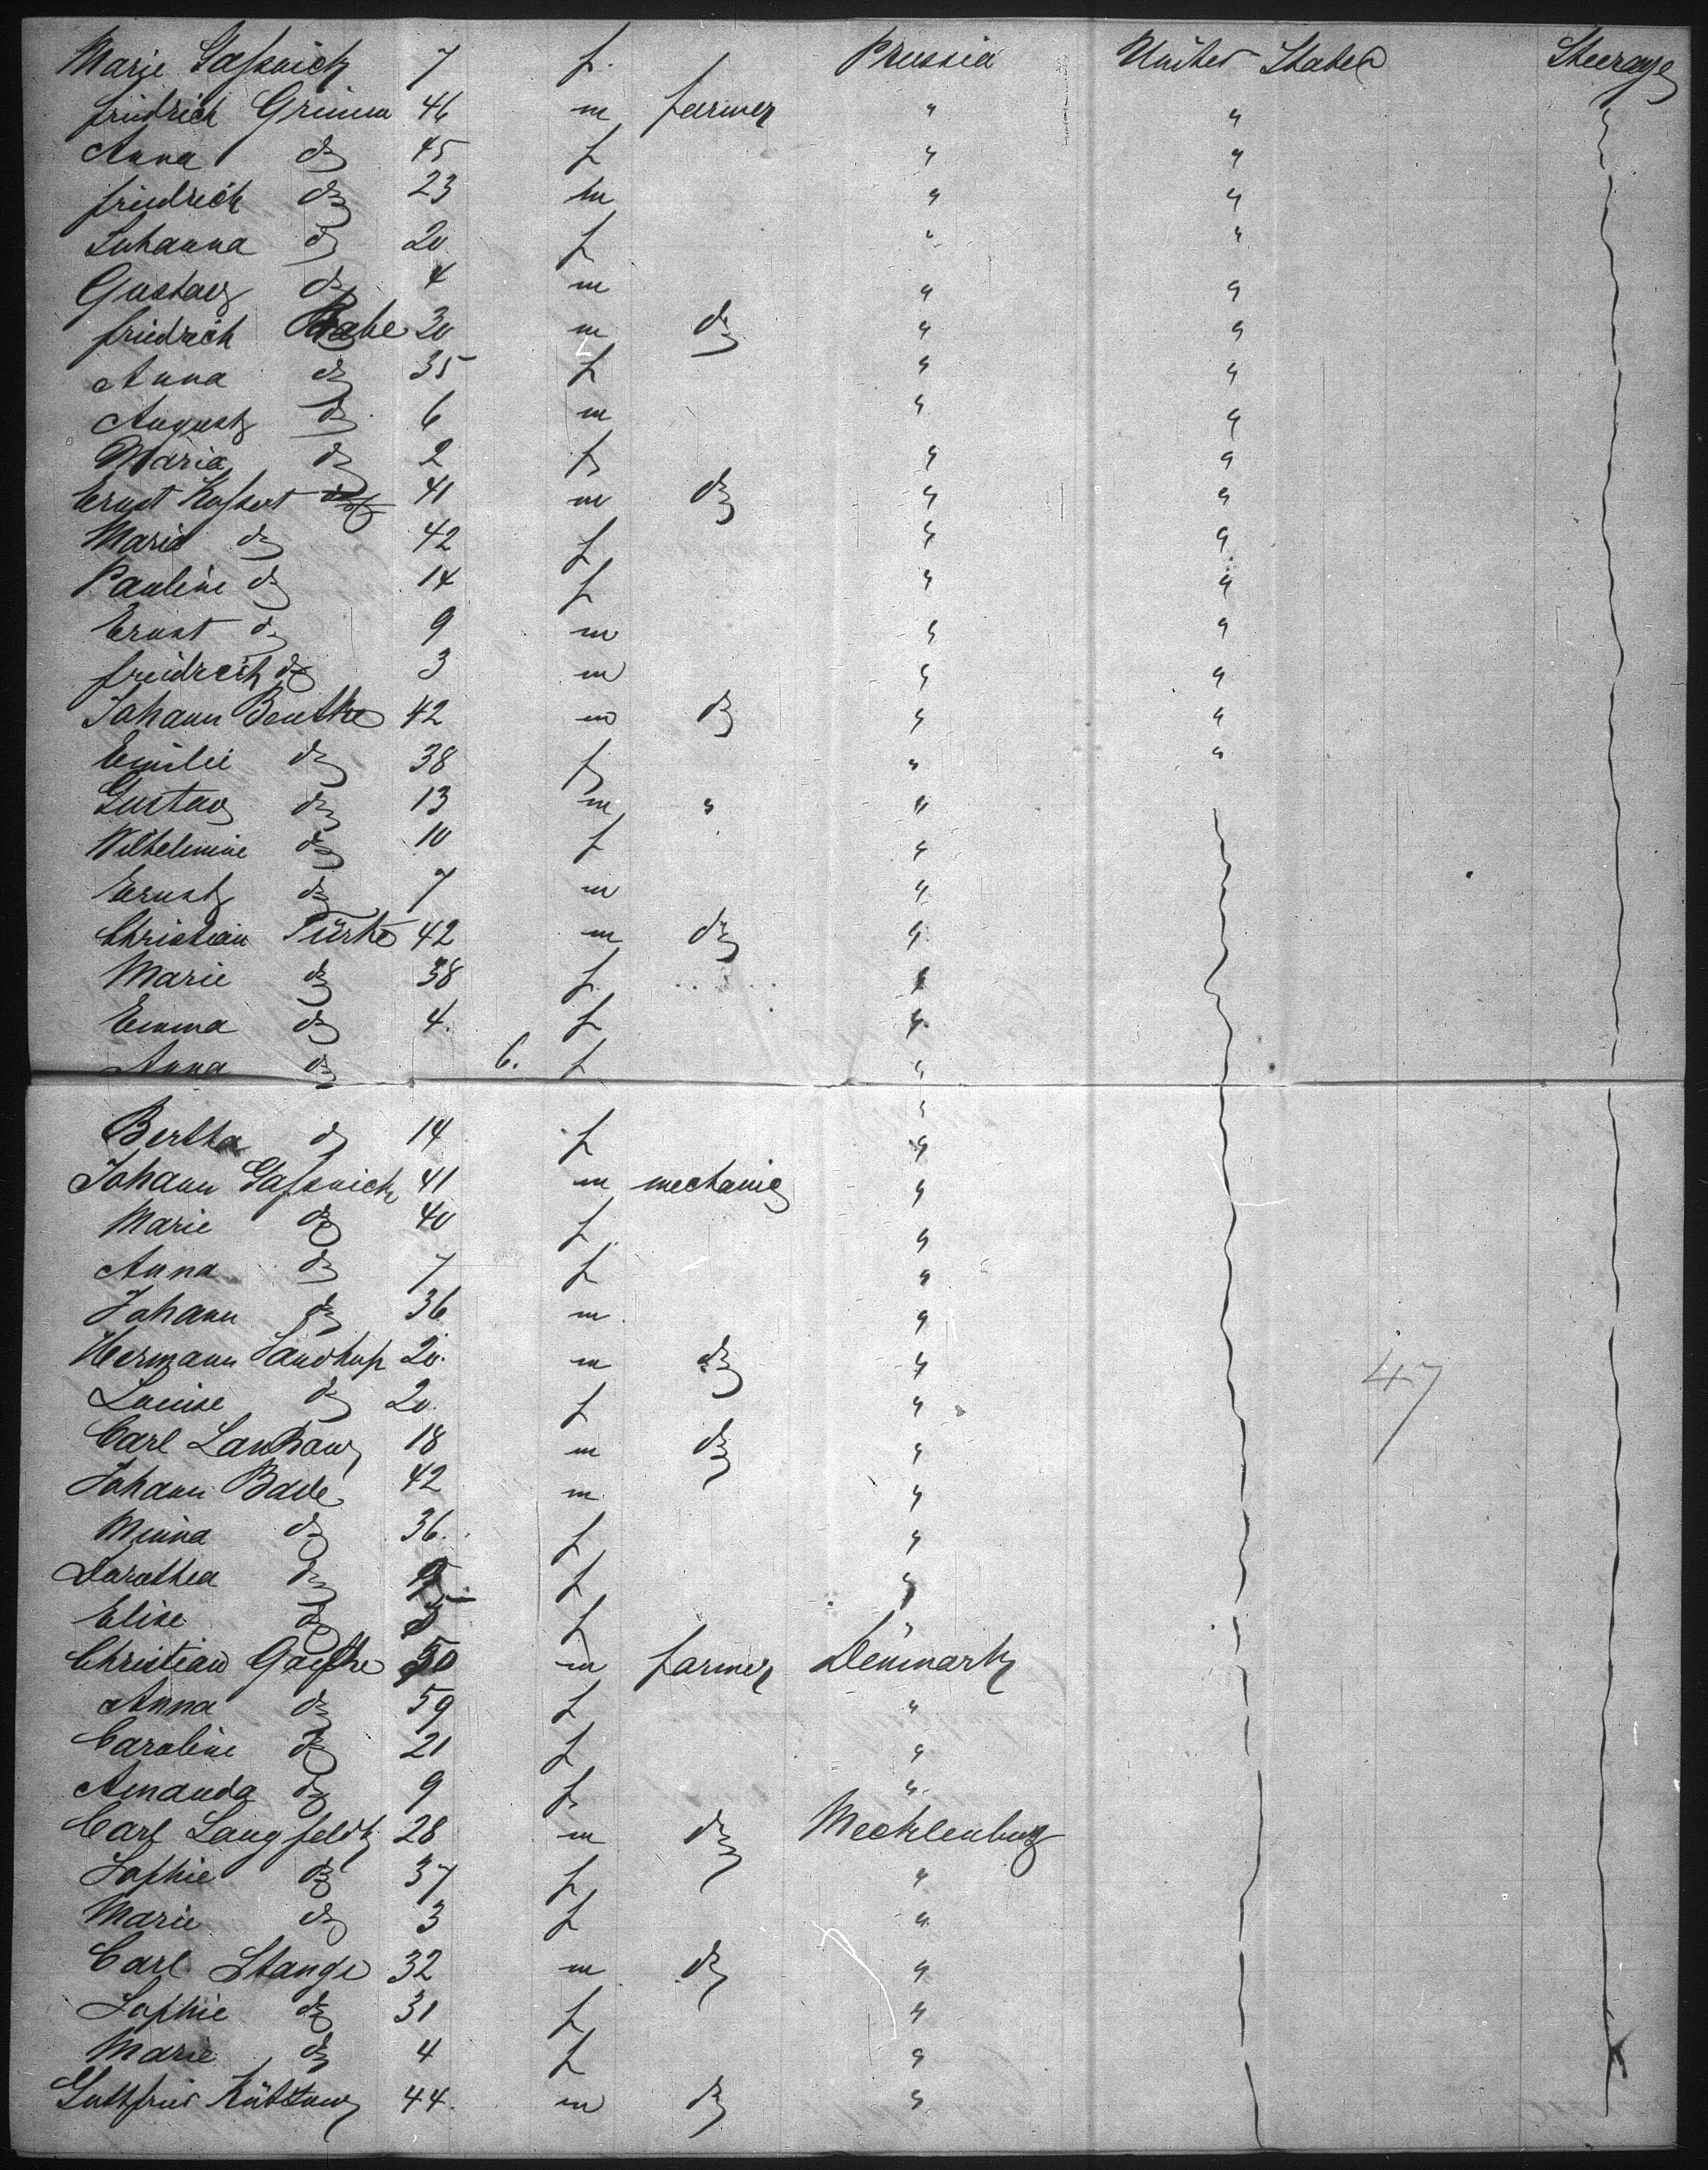 Marie Gaßnick 7 f. Prussia United States Steerage
friedrich Grimm 46 m farmer " "
Anna do 45 f " "
friedrich do 23 m " "
Johanna do 20 f " "
Gustav do 4 m " "
friedrich Rabe 30 m do " "
Anna do 35 f " "
August do 6 m " "
Maria do 2 f " "
Ernst 41 m do " "
Maria do 42 f " "
Pauline do 14 f " "
Ernst do 9 m " "
freidrich do 3 m " "
Johann Benthe 42 m do " "
Emilie do 38 f " "
Gustav do 13 m " "
Wilhelmine do 10 f "
Ernst do 7 m "
Christian Türke 42 m do "
Marie do 38 f "
Emma do 4. f "
Anna do 6. f "
Bertha do 14 f "
Johann Gaßnick 41 m mechanic "
Marie do 40 f "
Anna do 7 f "
Johann do 36 m "
Hermann 20. m do "
Louise do 20. f "
Carl Landkow 18 m do "
Johann Bade 42 m "
Minna do 36. f "
Dorothea do f "
Elise do 5 f "
Christian 50 m farmer Denmark
Anna do 59 f "
Caroline do 21 f "
Amanda do 9 f "
Carl Langfeldt 28 m do Mecklenburg
Sophie do 37 f "
Marie do 3 f "
Carl Stange 32 m do "
Sophie do 31 f "
Marie do 4 f "
Gottfried 44. m do "
47